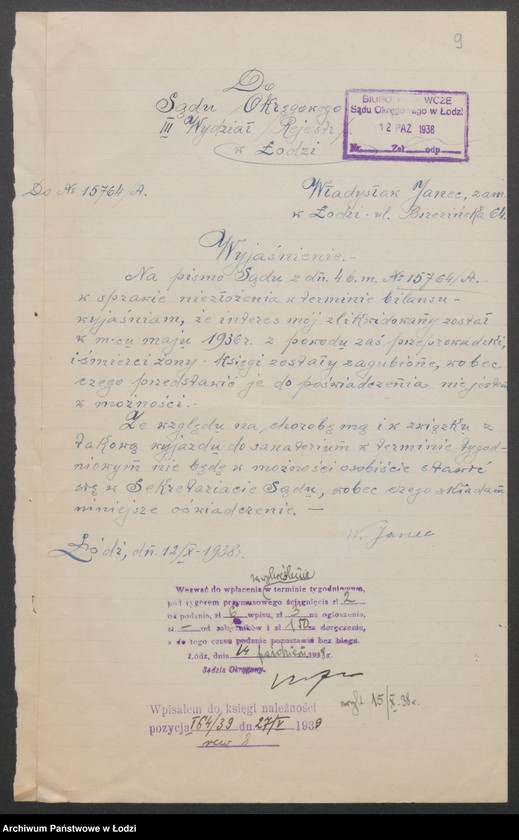 9
Do
Sądu Okręgowego
III Wydział Rejestr.
w Łodzi
BIURO PODAWCZE
Sądu Okręgowego w Łodzi
12 PAZ 1938
Nr. Zał. odp.
Do № 15764/A.
Władysław Janec, zam.
w Łodzi - ul. Brzezińska 64.
Wyjaśnienie.-
Na pismo Sądu z dń. 4 b.m. № 15764/A.
w sprawie niezłożenia w terminie bilansu -
wyjaśniam, że interes mój zlikwidowany został
w m-cu maju 1936r. z powodu zaś przeprowadzki,
i śmierci żony - księgi zostały zagubione, wobec
czego przedstawić je do poświadczenia nie jestem
w możności.-
Ze względu na chorobę mą i w związku z
takową wyjazdu do sanatorium w terminie tygod-
niowym nie będę w możności osobiście stawić
się w Sekretariacie Sądu, wobec czego składam
niniejsze oświadczenie. -
W. Janec
Łódź, dń. 12/X - 1938r.
Wezwać do wpłacenia w terminie tygodniowym,
pod rygorem przymusowego ściągnięcia zł 2
od podania, zł 6 wpisu, zł 5 na ogłoszenia,
zł - od załączników i zł 1 50 za doręczenie,
a do tego czasu podanie pozostawić bez biegu.
Łódź, dnia 14 październ 1938 r.
Sędzia Okręgowy.
wyk. 15/X 38 r.
Wpisałem do księgi należności
pozycja 164/39 dn. 27/V 1939
Archiwum Państwowe w Łodzi